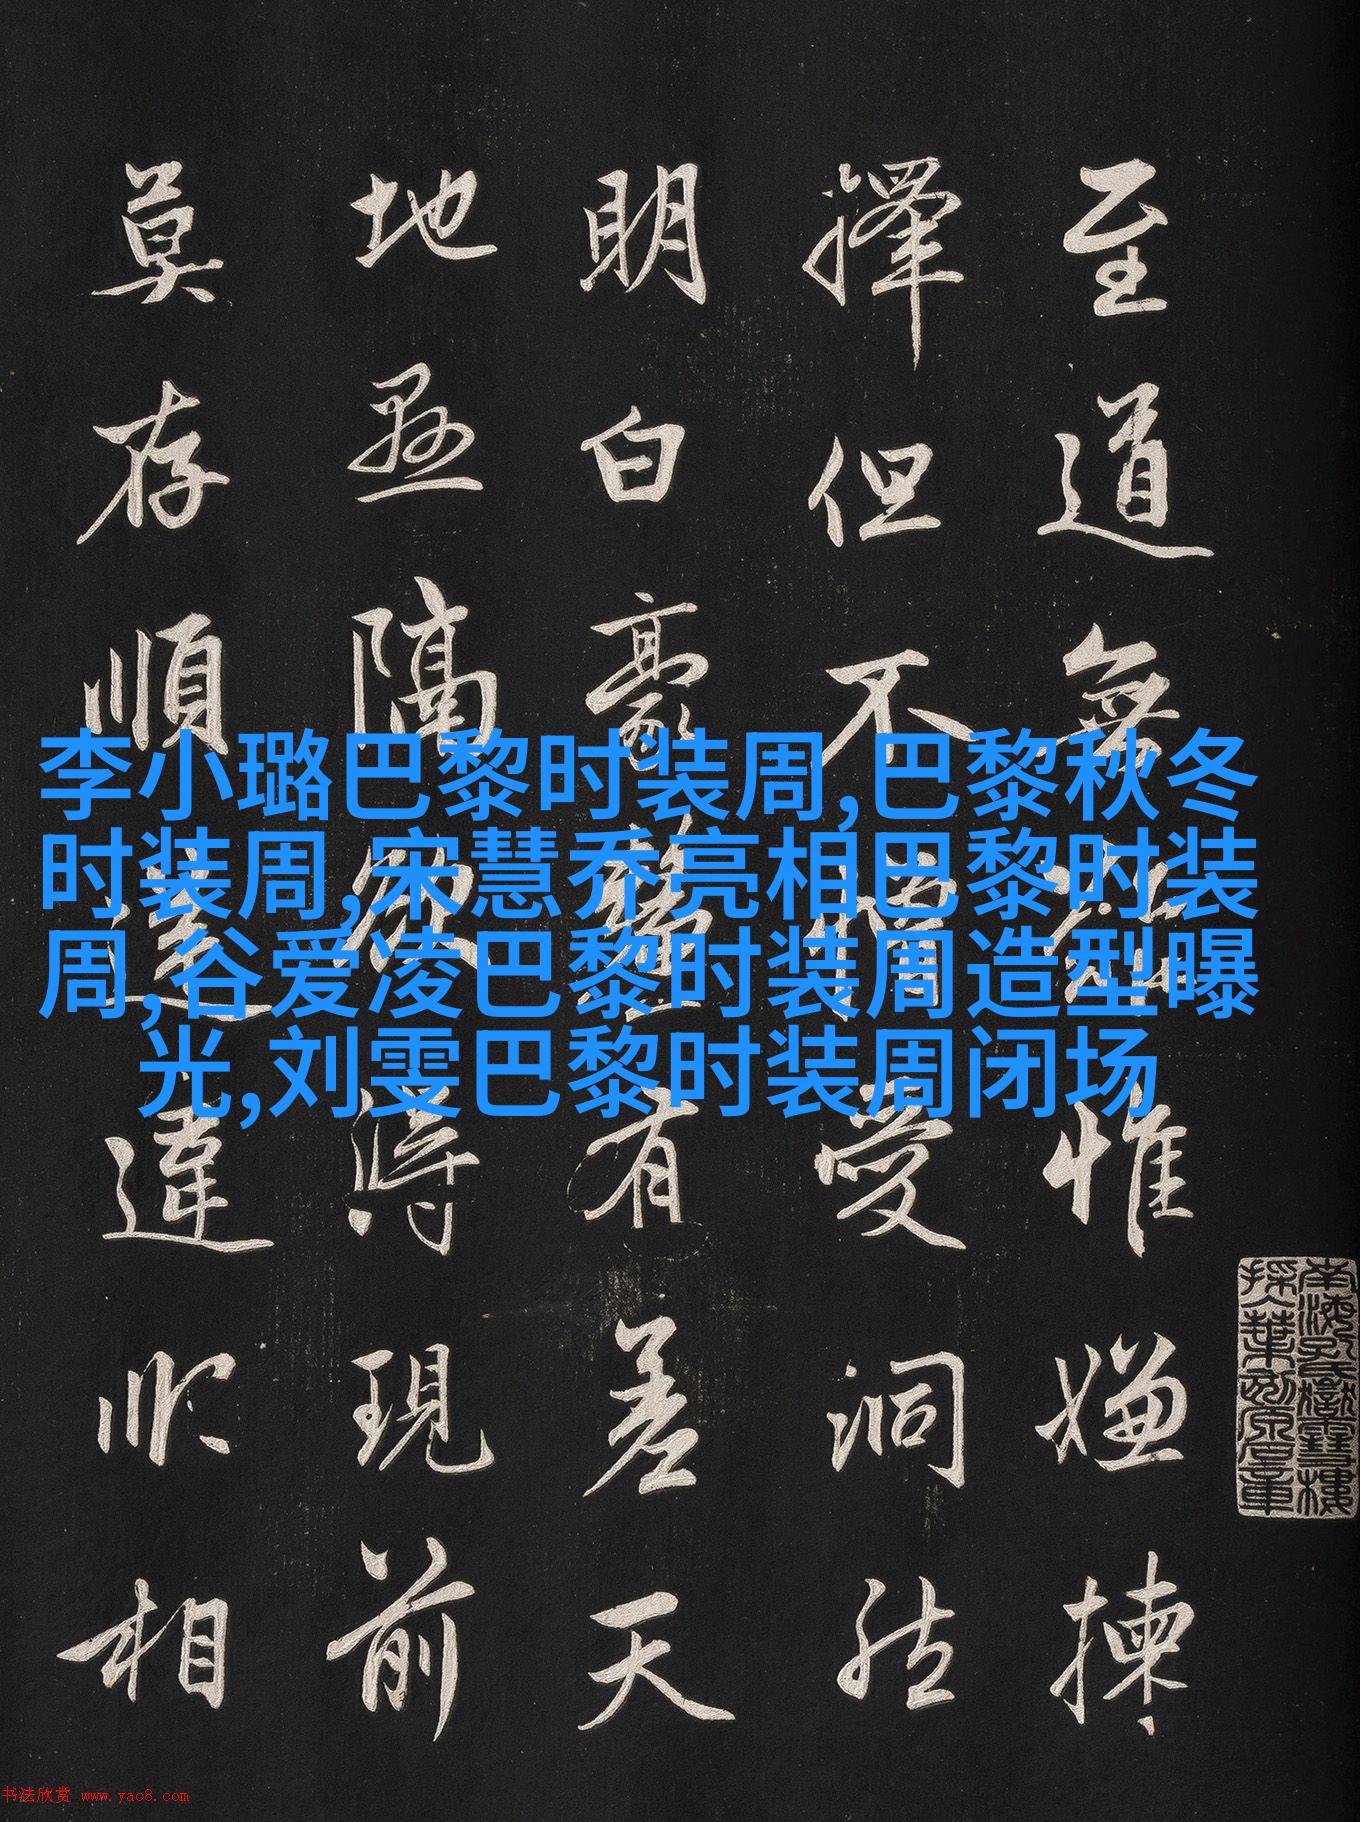 至道無難惟嫌揀
擇但不憎愛洞然
明白毫釐有差天
地懸隔欲得現前
莫存順逆違順相
李小璐巴黎时装周,巴黎秋冬
时装周,宋慧乔亮相巴黎时装
周,谷爱凌巴黎时装周造型曝
光,刘雯巴黎时装周闭场
南海孔氏嶽雪樓
书法欣赏 www.yac8.com